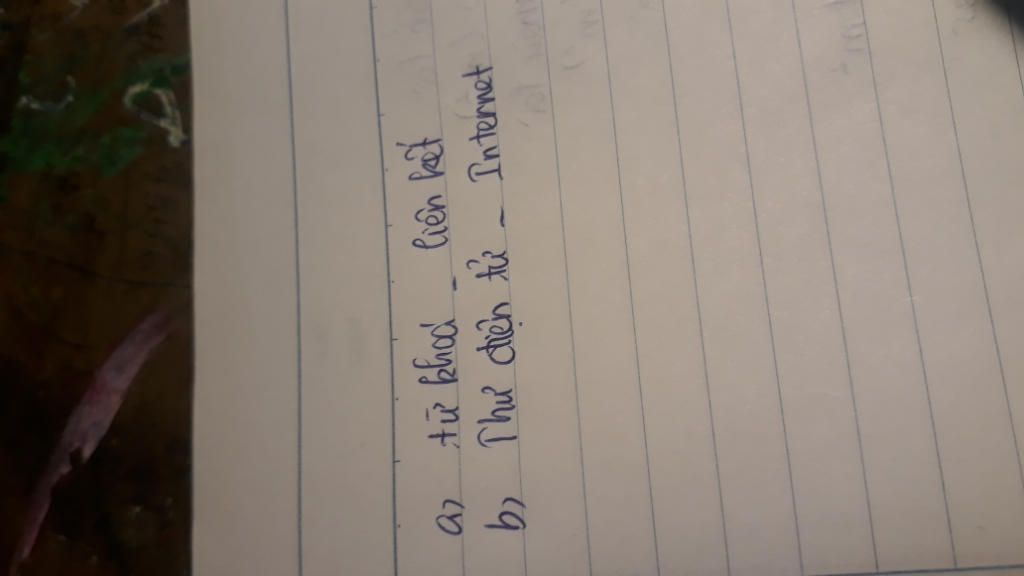 a, từ khoá - liên kết
b, Thư điện tử - Internet